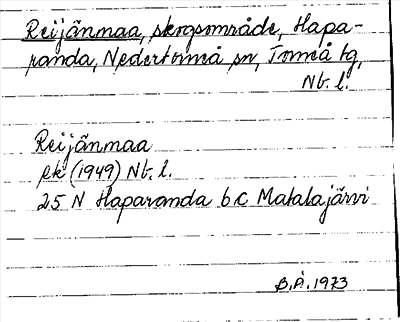 Reijänmaa, skogsområde, Hapa-
randa, Nedertorneå sn, Torneå tg,
Nb. l.
Reijänmaa
ek (1949) Nb. l.
25 N Haparanda 6 c Matalajärvi
B.Å. 1973